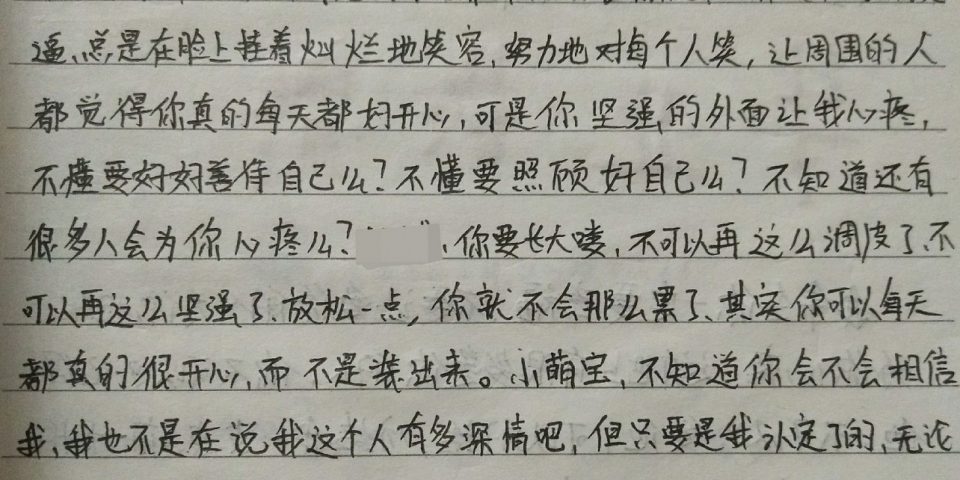 逼,总是在脸上挂着灿烂地笑容,努力地对每个人笑,让周围的人
都觉得你真的每天都好开心,可是你坚强的外面让我心疼,
不懂要好好善待自己么?不懂要照顾好自己么?不知道还有
很多人会为你心疼么?、你要长大喽,不可以再这么调皮了、不
可以再这么坚强了、放松一点,你就不会那么累了、其实你可以每天
都真的很开心,而不是装出来。小萌宝,不知道你会不会相信
我、我也不是在说我这个人有多深情吧,但只要是我认定了的、无论